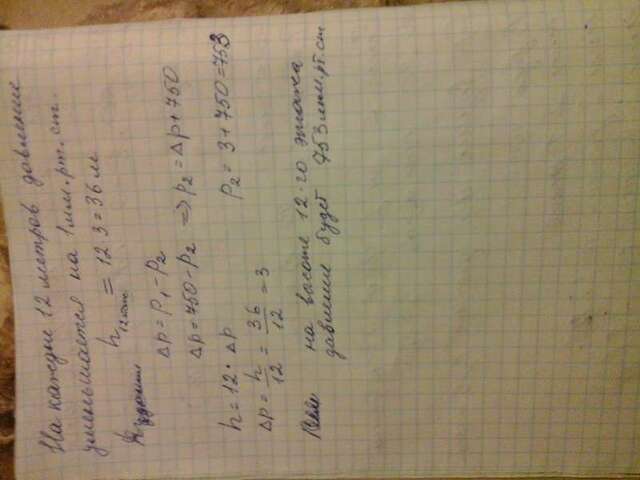 На каждые 12 метров давление
уменьшается на 1 мм.рт.ст.
h12 эт = 12 3 = 36 м
Δp = p1 - p2
Δp = 750 - p2 => p2 = Δp + 750
h = 12 · Δp
p2 = 3 + 750 = 753
Δp = h/12 = 36/12 = 3
на высоте 12-го этажа
давление будет 753 мм.рт.ст